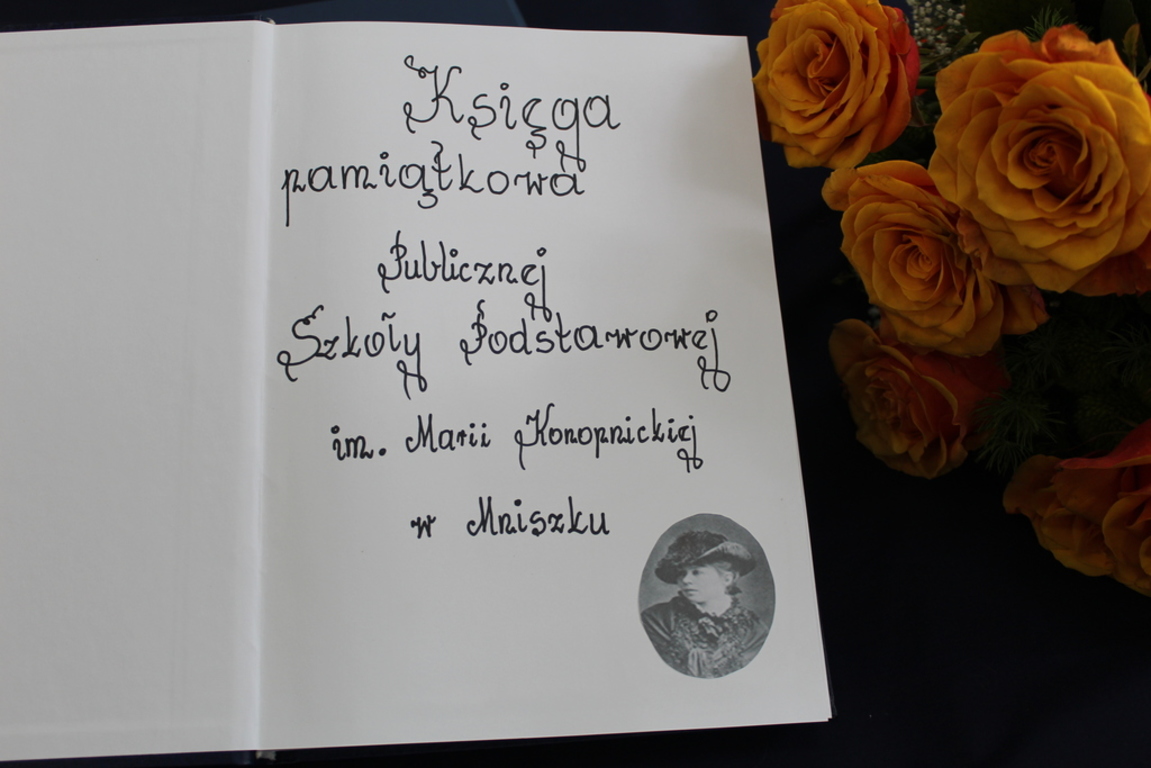 Księga
pamiątkowa
Publicznej
Szkoły Podstawowej
im. Marii Konopnickiej
w Mniszku